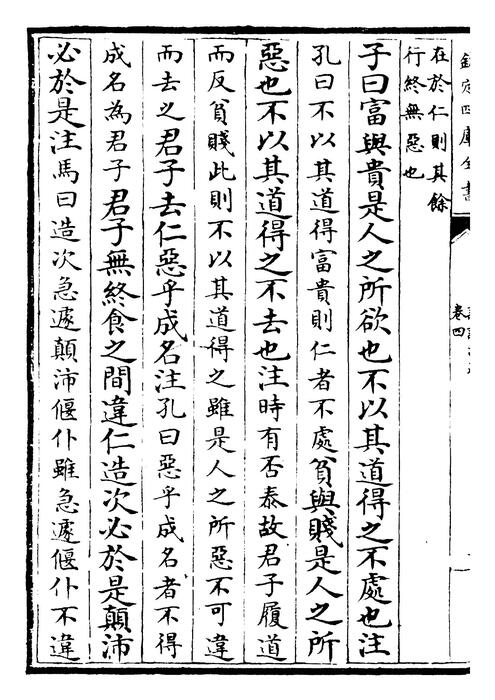 欽定四庫全書
卷四
在於仁則其餘
行終無惡也
子曰富與貴是人之所欲也不以其道得之不處也注
孔曰不以其道得富貴則仁者不處貧與賤是人之所
惡也不以其道得之不去也注時有否泰故君子履道
而反貧賤此則不以其道得之雖是人之所惡不可違
而去之君子去仁惡乎成名注孔曰惡乎成名者不得
成名為君子君子無終食之間違仁造次必於是顛沛
必於是注馬曰造次急遽顛沛偃仆雖急遽偃仆不違